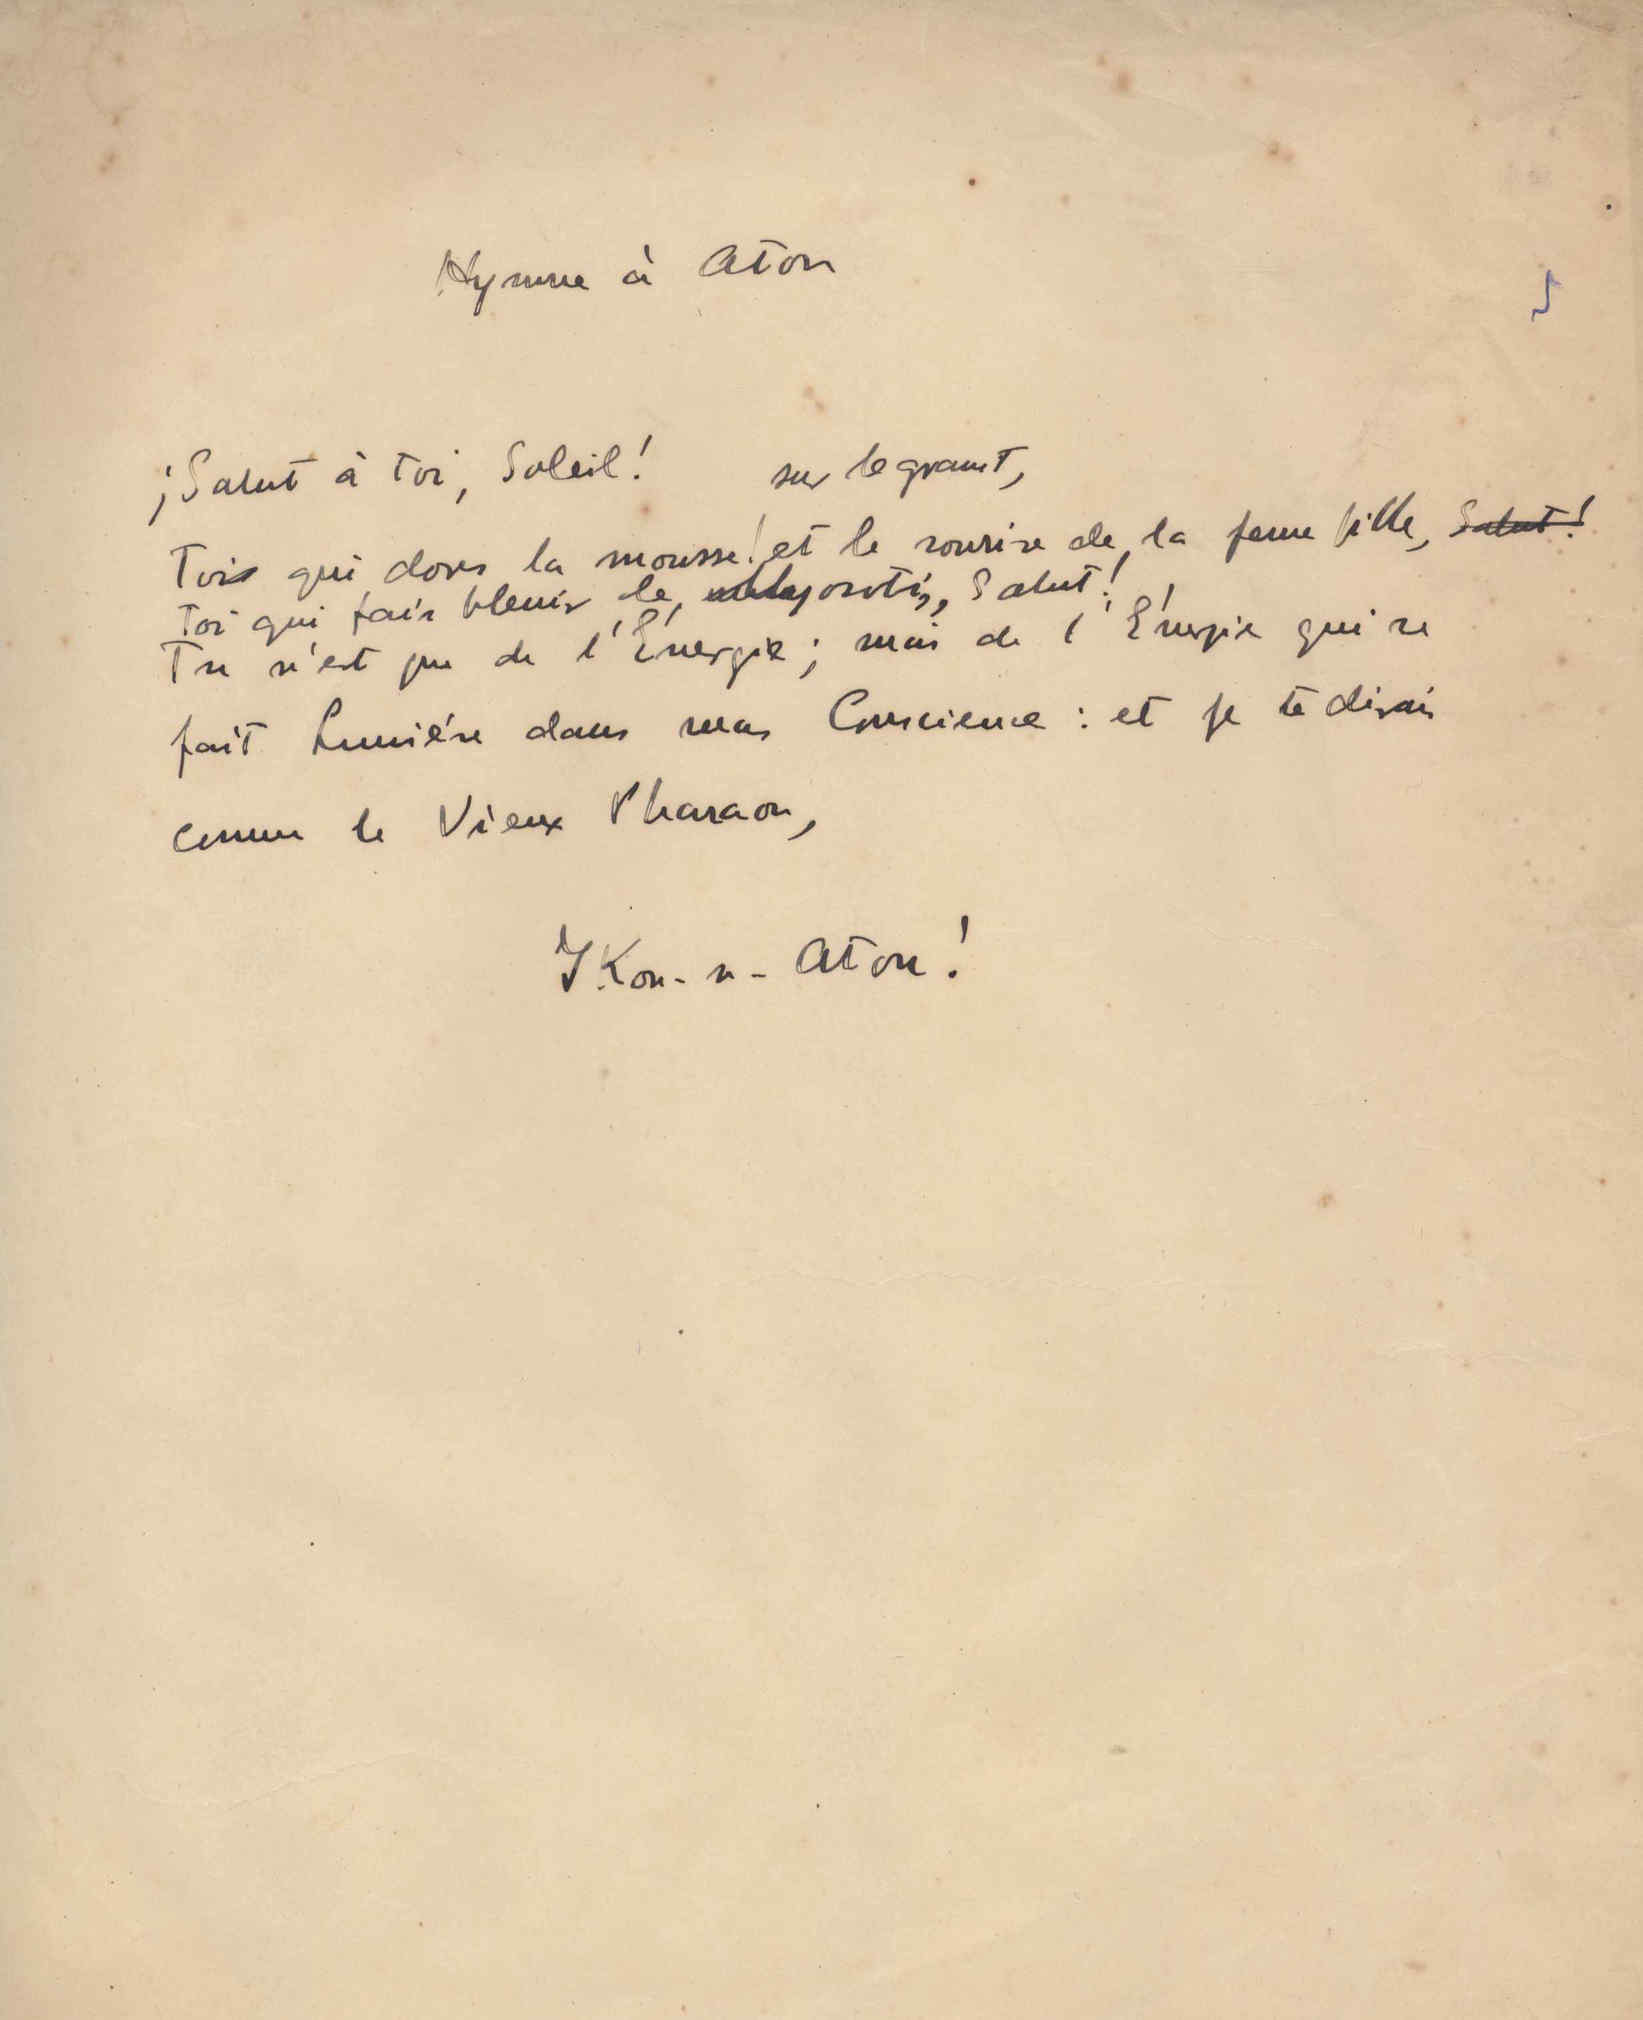 Hymne à Aton
5
¡Salut à toi, Soleil!
sur le granit,
Tois qui dors la mousse! et le sourire de la jeune fille, Salut!
Toi qui fais bleuir le myosotis, Salut!
Tu n'est pas de l'Énergie; mais de l'Énergie qui se
fait Lumière dans mas Conscience: et je te dirais
comme le Vieux Pharaon,
IKon-n-Aton!